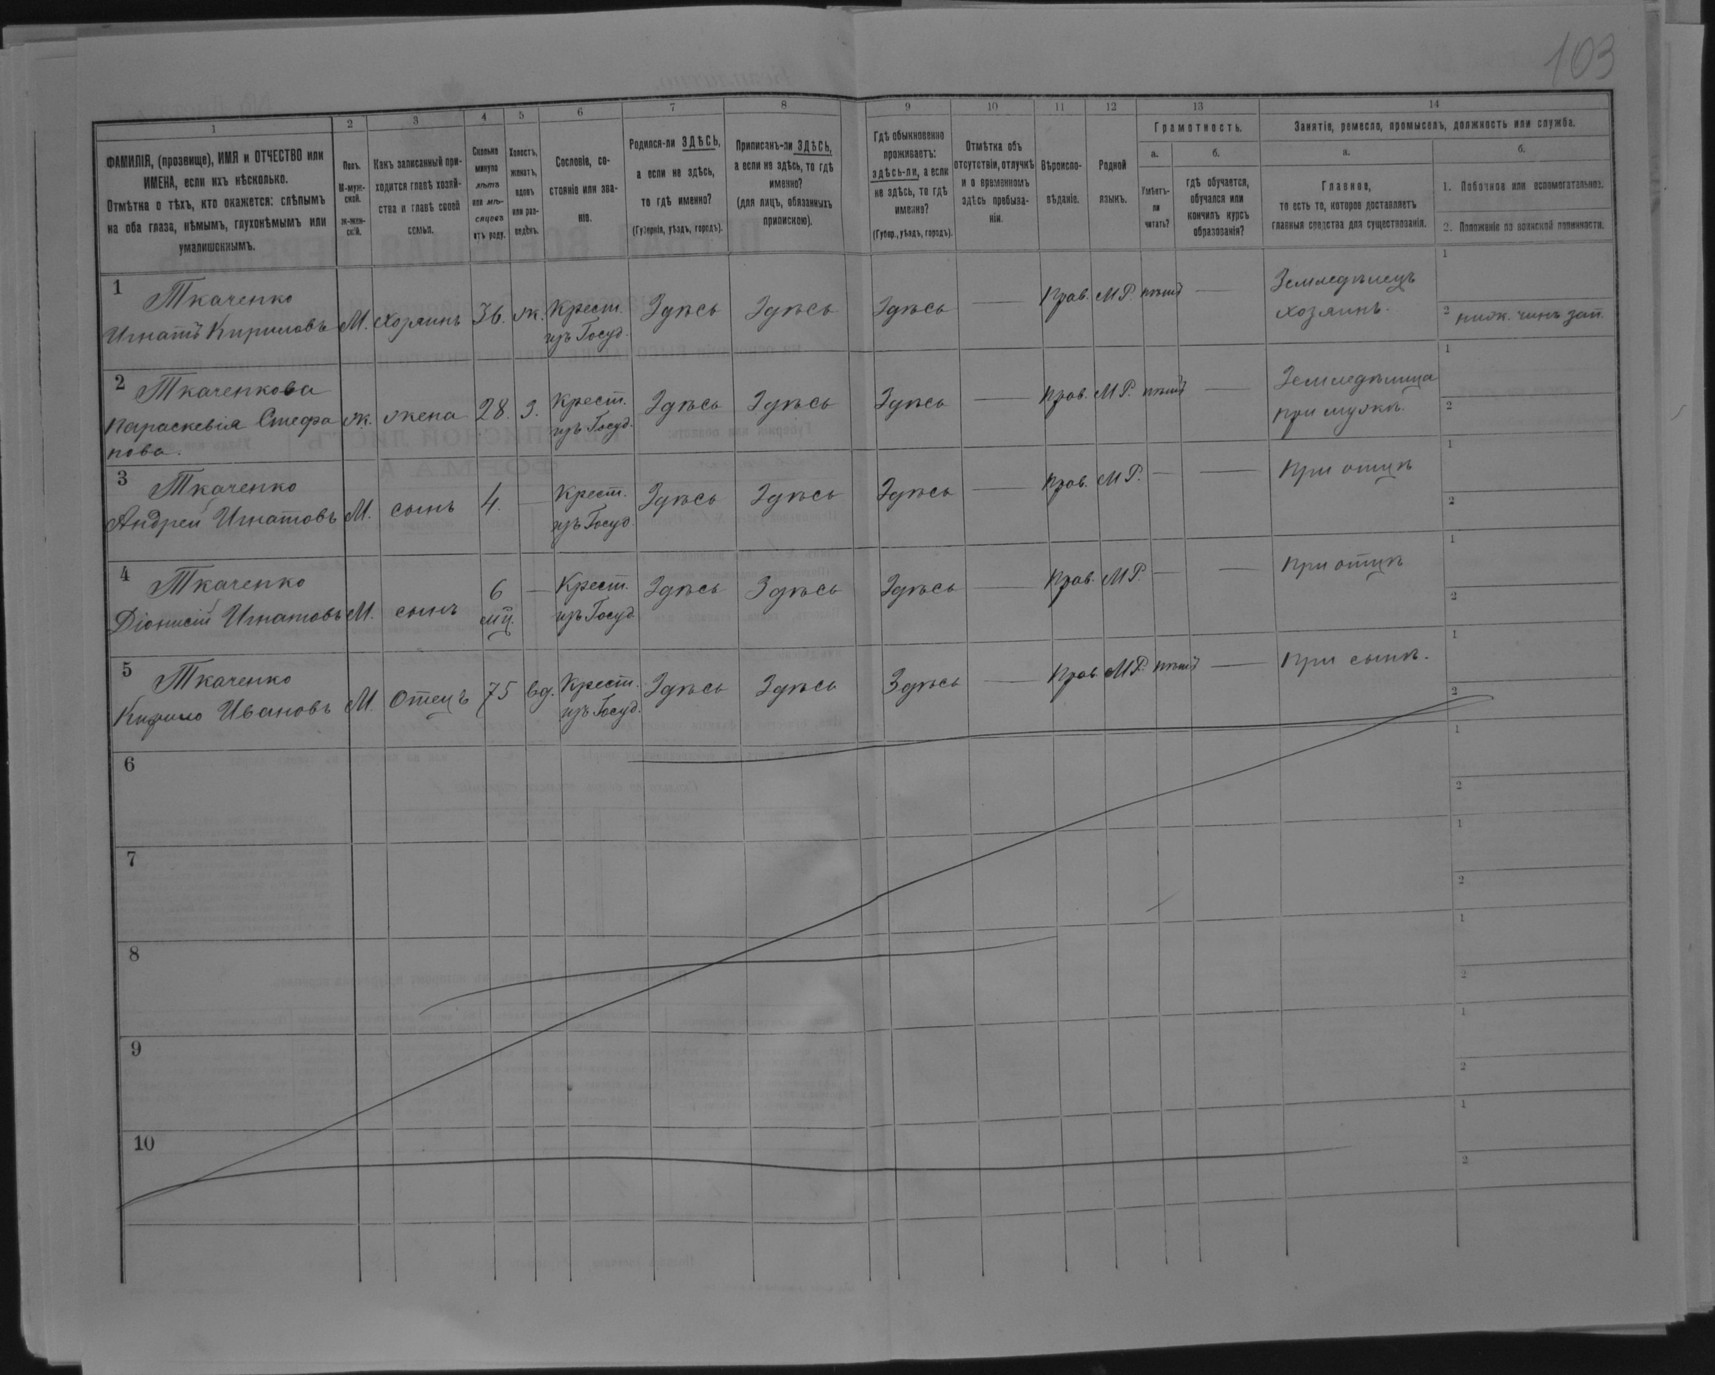 103
1
2
3
4
5
6
7
8
9
10
11
12
13
14
ФАМИЛІЯ, (прозвище), ИМЯ и ОТЧЕСТВО или
ИМЕНА, если ихъ нѣсколько.
Отмѣтка о тѣхъ, кто окажется: слѣпымъ
на оба глаза, нѣмымъ, глухонѣмымъ или
умалишоннымъ.
Полъ.
М-муж-
ской.
Ж-жен-
скій.
Какъ записанный при-
ходится главѣ хозяй-
ства и главѣ своей
семьи.
Сколько
минуло
лѣтъ
или мѣ-
сяцевъ
отъ роду.
Холостъ,
женатъ,
вдовъ
или раз-
веденъ.
Сословіе, со-
стояніе или зва-
ніе.
Родился-ли ЗДѢСЬ,
а если не здѣсь,
то гдѣ именно?
(Губернія, уѣздъ, городъ).
Приписанъ-ли ЗДѢСЬ,
а если не здѣсь, то гдѣ
именно?
(для лицъ, обязанныхъ
припискою).
Гдѣ обыкновенно
проживаетъ:
здѣсь-ли, а если
не здѣсь, то гдѣ
именно?
(Губер., уѣздъ, городъ).
Отмѣтка объ
отсутствіи, отлучкѣ
и о временномъ
здѣсь пребыва-
ніи.
Вѣроиспо-
вѣданіе.
Родной
языкъ.
Грамотность.
а.
б.
Умѣетъ-
ли
читать?
гдѣ обучается,
обучался или
кончилъ курсъ
образованія?
Занятіе, ремесло, промыселъ, должность или служба.
а.
б.
Главное,
то есть то, которое доставляетъ
главныя средства для существованія.
1. Побочное или вспомогательное.
2. Положеніе по воинской повинности.
1 Ткаченко
Игнатъ Кириловъ М. Хозяинъ 36. ж. Крест. изъ Госуд. Здѣсь Здѣсь Здѣсь — Прав. М.Р. нѣтъ — Земледѣлецъ
хозяинъ.
1
2 нижн. чинъ зап.
2 Ткаченкова
Параскевія Стефа
нова. ж. жена 28. з. Крест. изъ Госуд. Здѣсь Здѣсь Здѣсь — Прав. М.Р. нѣтъ — Земледѣлица
при мужѣ.
1
2
3 Ткаченко
Андрей Игнатовъ М. сынъ 4. — Крест. изъ Госуд. Здѣсь Здѣсь Здѣсь — Прав. М.Р. — — При отцѣ
1
2
4 Ткаченко
Діонисій Игнатовъ М. сынъ 6 мц. — Крест. изъ Госуд. Здѣсь Здѣсь Здѣсь — Прав. М.Р. — — При отцѣ
1
2
5 Ткаченко
Кирило Ивановъ М. Отецъ 75 вд. Крест. изъ Госуд. Здѣсь Здѣсь Здѣсь — Прав. М.Р. нѣтъ — При сынѣ.
1
2
6
1
2
7
1
2
8
1
2
9
1
2
10
1
2